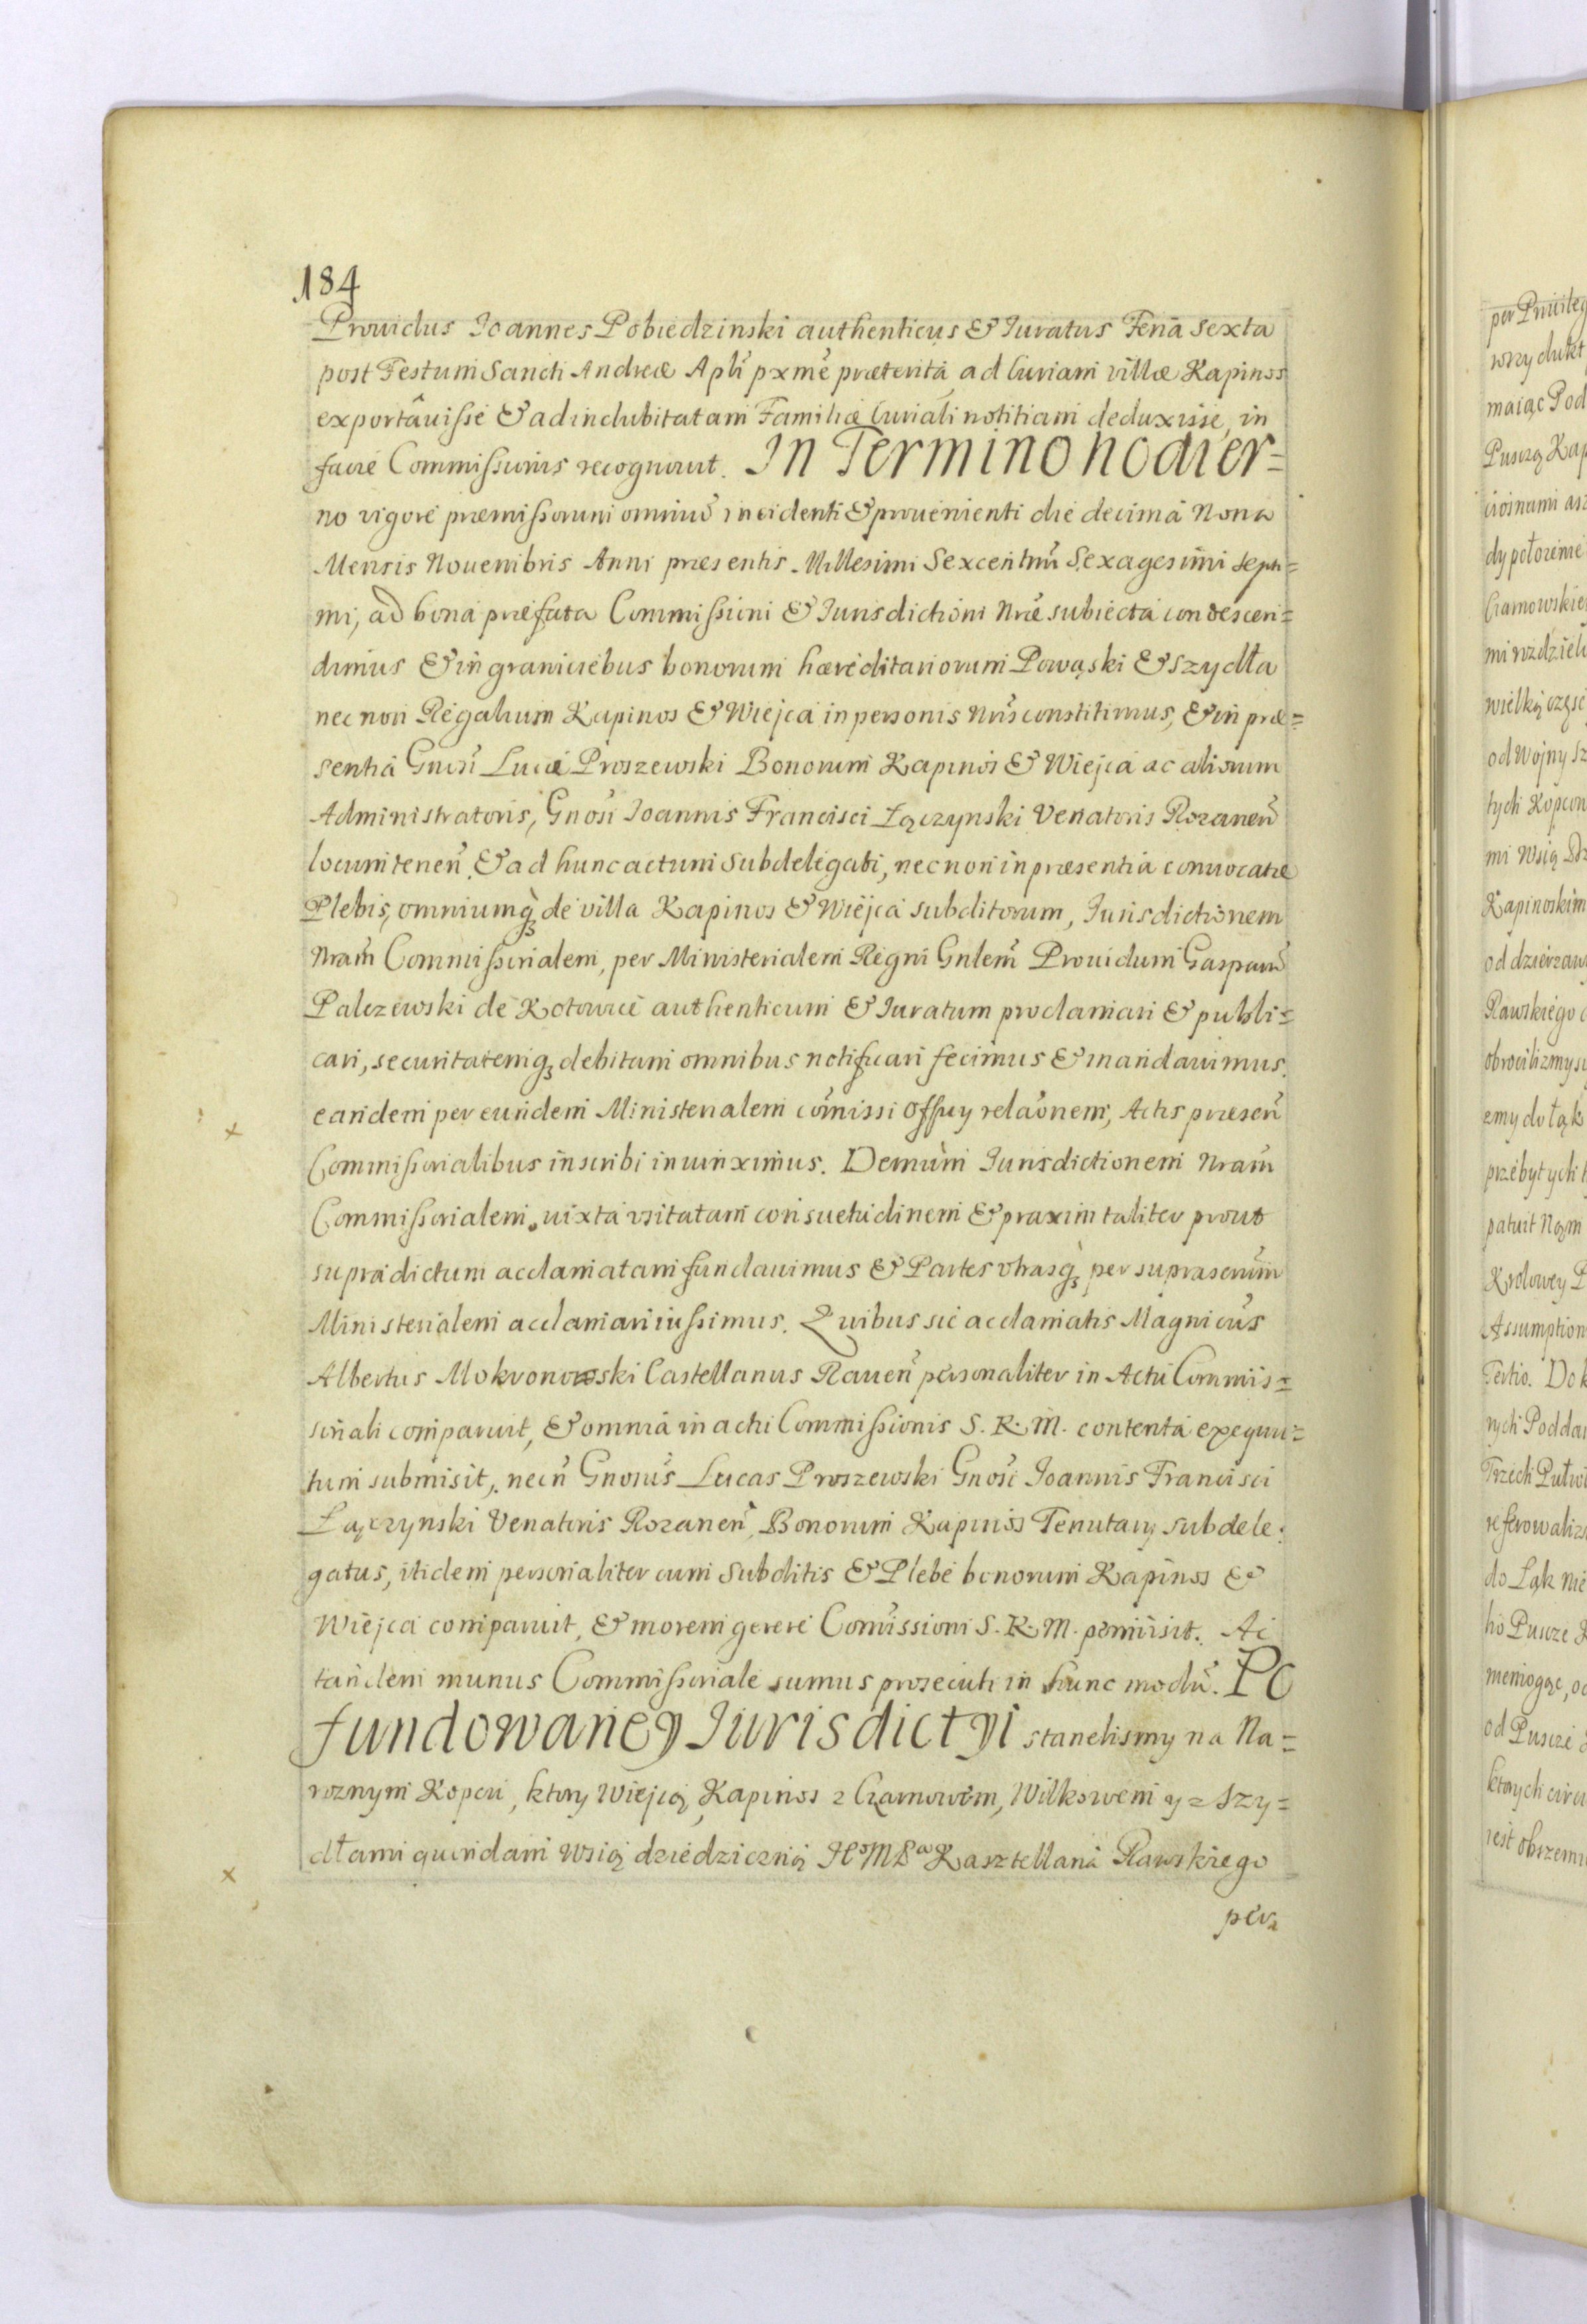 184
Prouidus Joannes Pobiedzinski authenticus & Juratus Feria sexta
post Festum Sancti Andreæ Apli pxmè præterita ad Curiam villæ Kapinos
exportâuisse & ad indubitatam Familiæ Curiali notitiam deduxisse, in
facie Commissionis recognouit. In Termino hodier=
no vigore præmissorum omniũ incidenti & prouenienti die decima Nona
Mensis Nouembris Anni præsentis Millesimi Sexcentmi Sexagesimi septi=
mi, ad bona præfata Commissioni & Jurisdictioni Nræ subiecta condescen=
dimus & in graniciebus bonorum hæreditariorum Powąski & Szydła
nec non Regalium Kapinos & Wiejca in personis Nris constitimus, & in præ=
sentia Gnisi Lucæ Proszewski Bonorum Kapinos & Wiejca ac aliorum
Administratoris, Gnosi Joannis Francisci Łączynski Venatoris Rozaneñ
locumteneñ & ad hunc actum Subdelegati, nec non in præsentia conuocatæ
Plebis, omniumq de villa Kapinos & Wiejca subditorum, Jurisdictionem
Nram Commissorialem, per Ministerialem Regni Gnlem Prouidum Gasparũ
Palczewski de Kotowice authenticum & Juratum proclamari & publi=
cari, securitatemq debitam omnibus notificari fecimus & mandauimus.
eandem per eundem Ministerialem comissi Offuy relaonem, Actis præseñ
Commissorialibus inscribi iniunximus. Demùm Jurisdictionem Nram
Commissorialem iuxta vsitatam consuetudinem & praxim taliter prout
supradictum acclamatam fundauimus & Partes vtrasq per suprascrum
Ministerialem acclamari iussimus. Quibus sic acclamatis Magnicus
Albertus Mokronowski Castellanus Raueñ personaliter in Actu Commis=
sionali comparuit, & omnia in actu Commissionis S. R. M. contenta exequu=
tum submisit, necñ Gnosus Lucas Proszewski Gnosi Joannis Francisci
Łączynski Venatoris Rozaneñ, Bonorum Kapinos Tenutarij subdele=
gatus, itidem personaliter cum Subditis & Plebe bonorum Kapinos &
Wiejca comparuit, & morem gerere Comissioni S. R. M. pomisit. Ac
tandem munus Commissoriale sumus prosecuti in hunc modũ. Po
fundowaney Jurisdictyi stanelismy na Na=
roznym Kopcu, ktory Wiejcą, Kapinos z Czarnowem, Wilkowem y z Szy=
dłami quondam Wsią dziedziczną JeoMPa Kasztellana Rawskiego
per